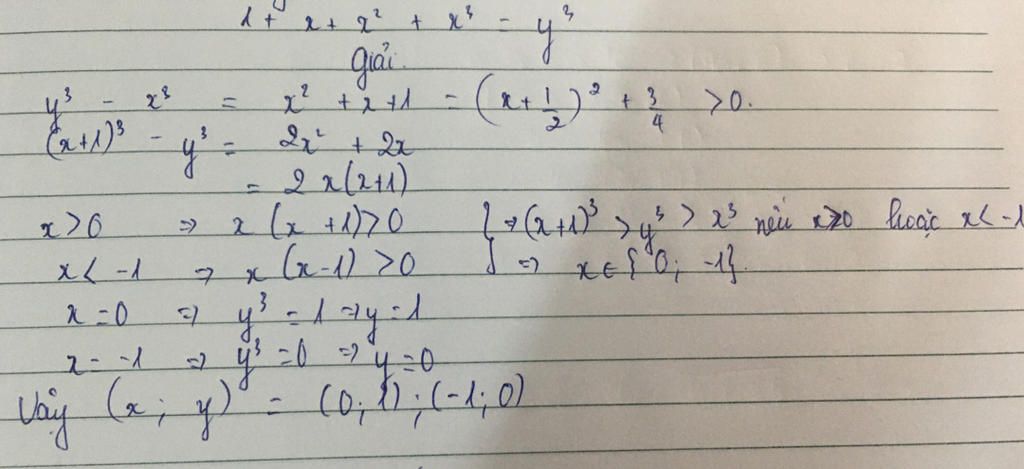 1 + x + x² + x³ = y³
Giải.
y³ - x³ = x² + x + 1 = (x + 1/2)² + 3/4 > 0.
(x+1)³ - y³ = 2x² + 2x
= 2x(x+1)
x > 0 ⇒ x (x + 1) > 0 } ⇒ (x+1)³ > y³ > x³ nếu x > 0 hoặc x < -1
x < -1 ⇒ x (x - 1) > 0 } ⇒ x ∈ {0; -1}.
x = 0 ⇒ y³ = 1 ⇒ y = 1
x = -1 ⇒ y³ = 0 ⇒ y = 0
Vậy (x; y) = (0; 1); (-1; 0)